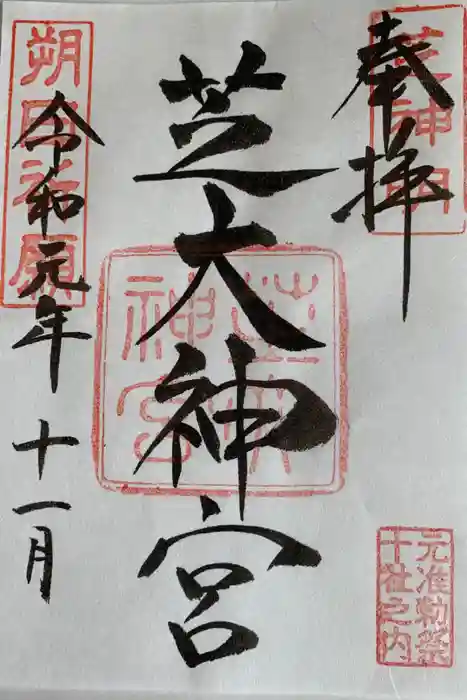 奉拝
芝神明
芝大神宮
元准勅祭
十社之内
朔日祈願
令和元年十一月